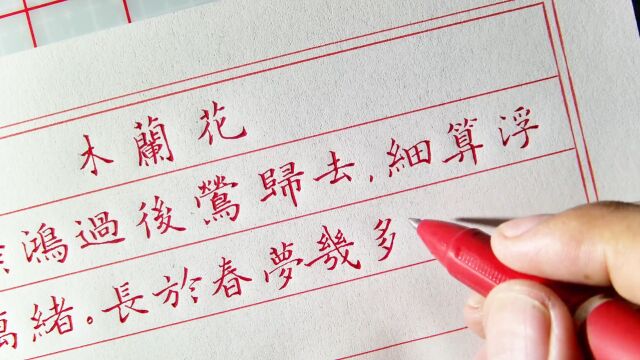 木蘭花
鴻過後鶯歸去,細算浮
萬緒。長於春夢幾多